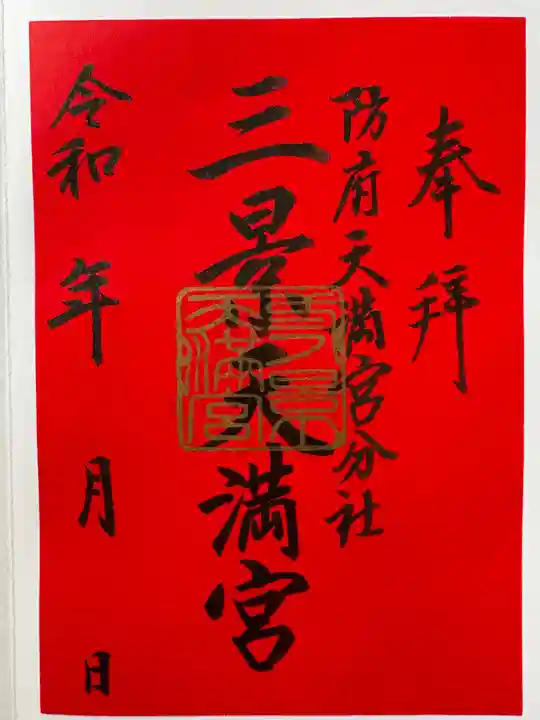 奉拝
防府天満宮分社
三景天満宮
令和 年 月 日